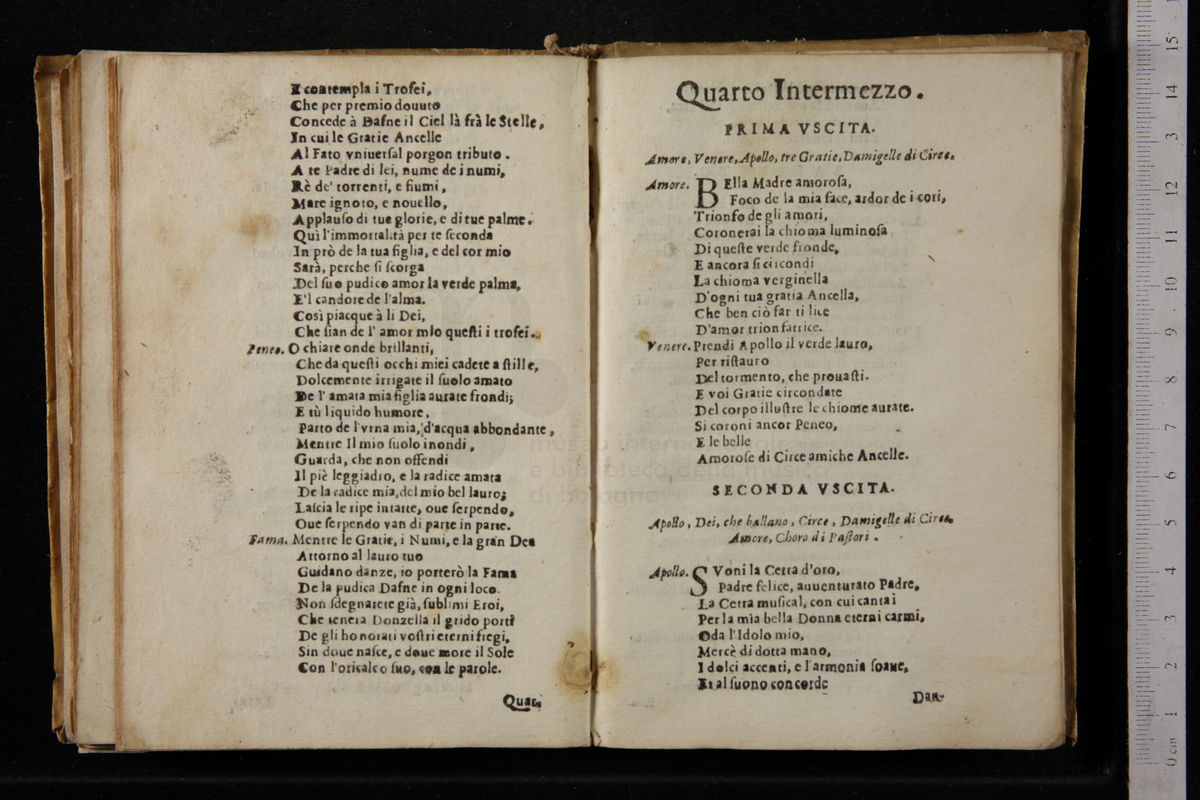 E contempla i Trofei,
Che per premio douuto
Concede à Dafne il Ciel là frà le Stelle,
In cui le Gratie Ancelle
Al Fato vniuersal porgon tributo.
A te Padre di lei, nume de i numi,
Rè de' torrenti, e fiumi,
Mare ignoto, e nouello,
Applauso di tue glorie, e di tue palme.
Quì l'immortalità per te seconda
In prò de la tua figlia, e del cor mio
Sarà, perche si scorga
Del suo pudico amor la verde palma,
E'l candore de l'alma.
Così piacque à li Dei,
Che sian de l' amor mio questi i trofei.
Peneo. O chiare onde brillanti,
Che da questi occhi miei cadete a stille,
Dolcemente irrigate il suolo amato
De l' amata mia figlia aurate frondi;
E tù liquido humore,
Parto de l'vrna mia, d'acqua abbondante,
Mentre Il mio suolo inondi,
Guarda, che non offendi
Il piè leggiadro, e la radice amata
De la radice mia, del mio bel lauro;
Lascia le ripe intatte, oue serpendo,
Oue serpendo van di parte in parte.
Fama. Mentre le Gratie, i Numi, e la gran Dea
Attorno al lauro tuo
Guidano danze, io porterò la Fama
De la pudica Dafne in ogni loco.
Non sdegnarete già, sublimi Eroi,
Che tenera Donzella il grido porti
De gli honorati vostri eterni fregi,
Sin doue nasce, e doue more il Sole
Con l'oricalco suo, con le parole.
Quar-
Quarto Intermezzo.
PRIMA VSCITA.
Amore, Venere, Apollo, tre Gratie, Damigelle di Circe.
Amore. BElla Madre amorosa,
Foco de la mia face, ardor de i cori,
Trionfo de gli amori,
Coronerai la chioma luminosa
Di queste verde fronde,
E ancora si circondi
La chioma verginella
D'ogni tua gratia Ancella,
Che ben ciò far ti lice
D'amor trionfatrice.
Venere. Prendi Apollo il verde lauro,
Per ristauro
Del tormento, che prouasti.
E voi Gratie circondate
Del corpo illustre le chiome aurate.
Si coroni ancor Peneo,
E le belle
Amorose di Circe amiche Ancelle.
SECONDA VSCITA.
Apollo, Dei, che ballano, Circe, Damigelle di Circe,
Amore, Choro di Pastori.
Apollo. SVoni la Cetra d'oro,
Padre felice, auuenturato Padre,
La Cetra musical, con cui cantai
Per la mia bella Donna eterni carmi,
Oda l'Idolo mio,
Mercè di dotta mano,
I dolci accenti, e l'armonia soaue,
Et al suono concorde
Dan-
museo internazionale
e biblioteca della musica
di bologna
0 cm 1 2 3 4 5 6 7 8 9 10 11 12 13 14 15